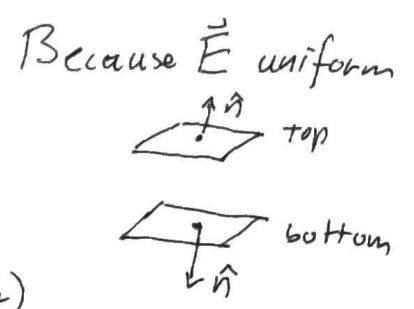 Because E⃗ uniform
n̂
top
bottom
n̂